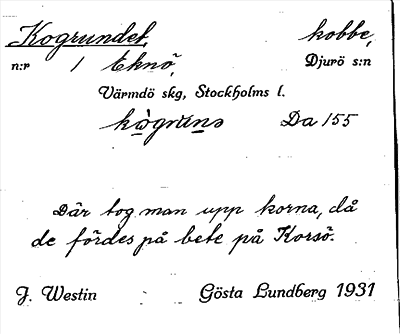 Kogrundet, kobbe,
n:r 1 Eknö, Djurö s:n
Värmdö skg, Stockholms l.
kògru̇nə Da 155
Där tog man upp korna, då
de fördes på bete på Korsö.
J. Westin Gösta Lundberg 1931